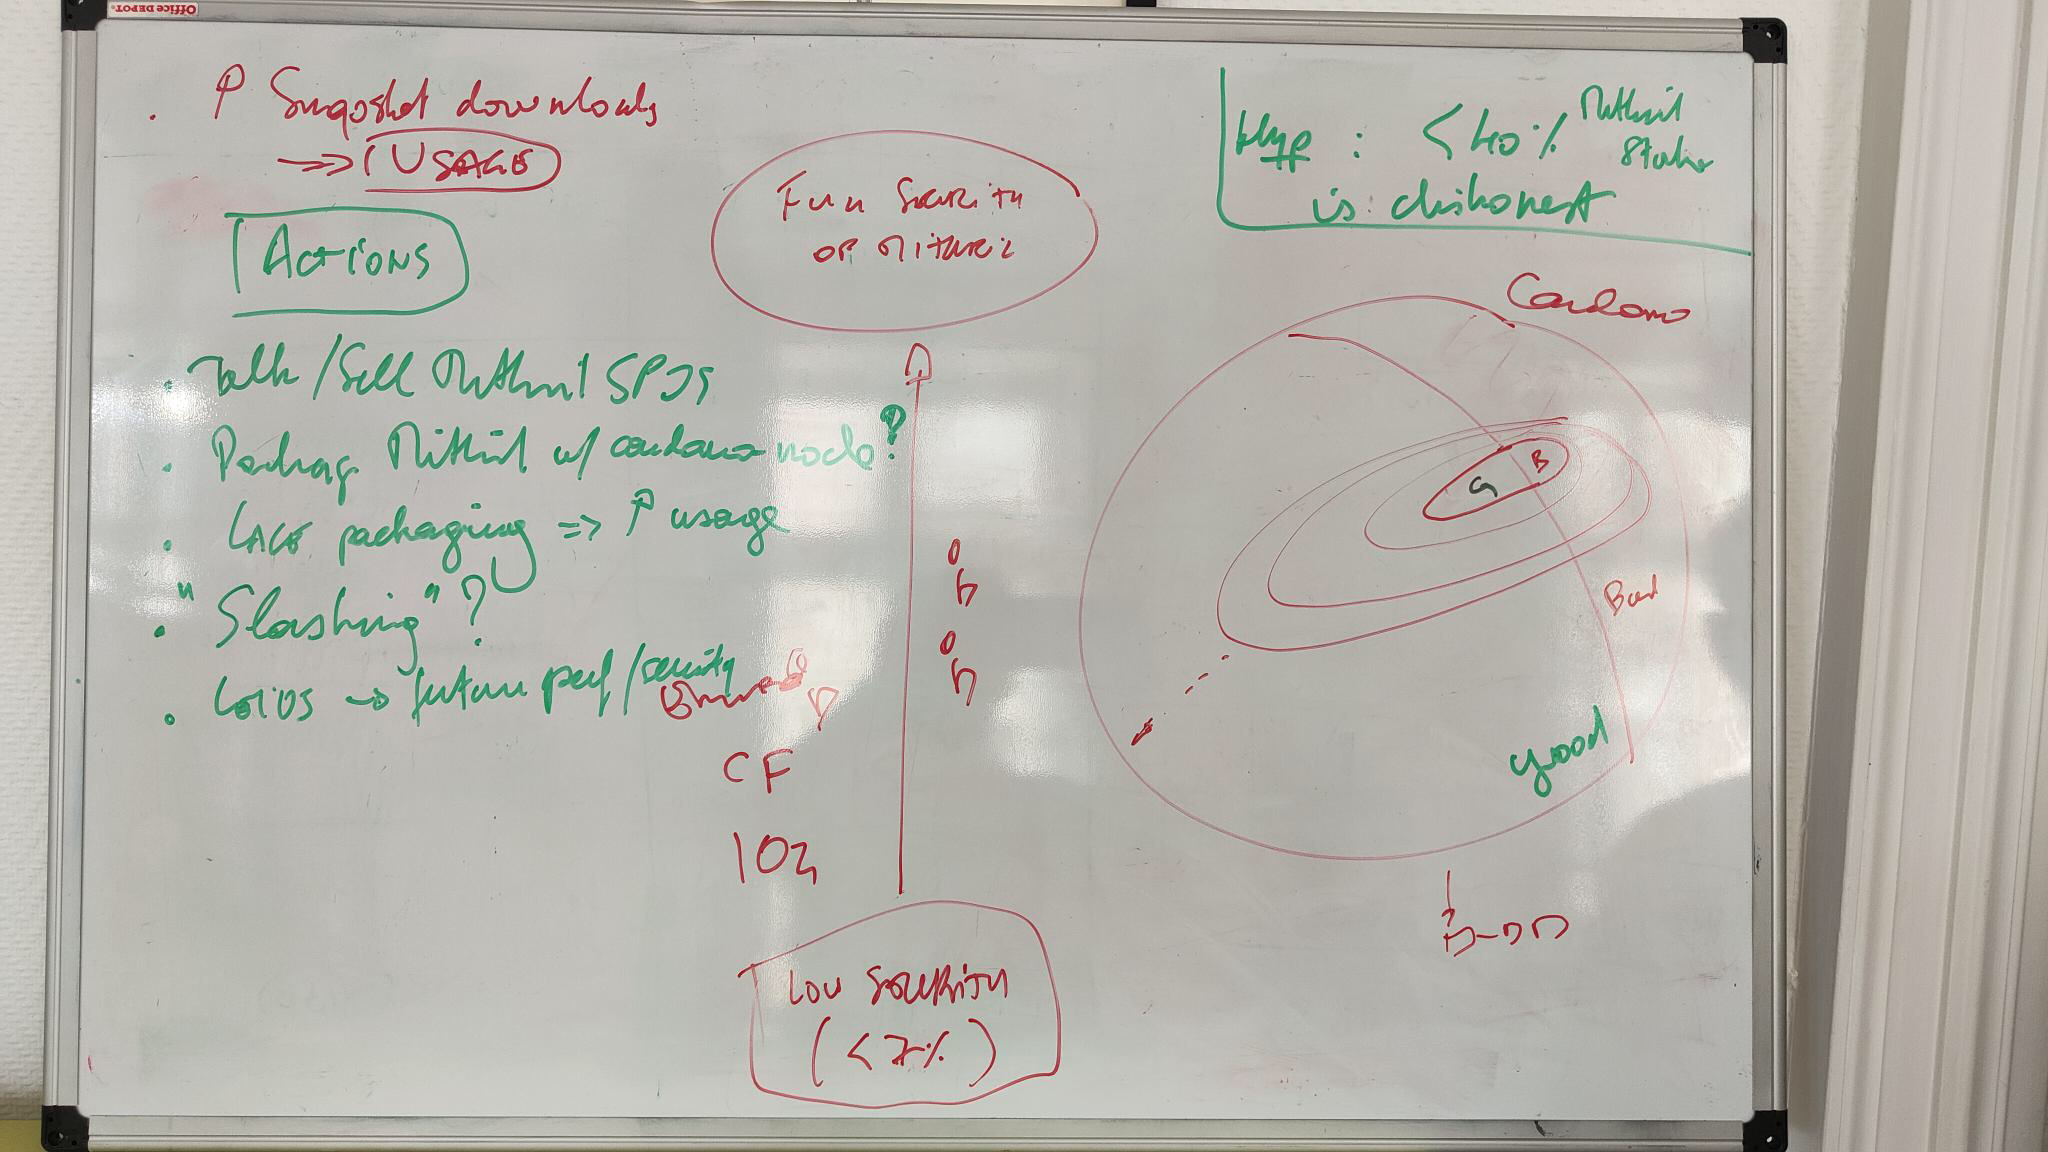 Office DEPOT
. ↑ Snapshot downloads
=>> ↑ USAGE
ACTIONS
. Talk / Sell Mithril SPOs
. Package Mithril w/ cardano node?
. LACE packaging => ↑ usage
. "Slashing" ?
. Leios -> future perf / security
CF
IOG
FULL SECURITY
OF MITHRIL
LOW SECURITY
(<7%)
Hyp : < 40% Mithril
Stake
is dishonest
Cardano
G B
Bad
good